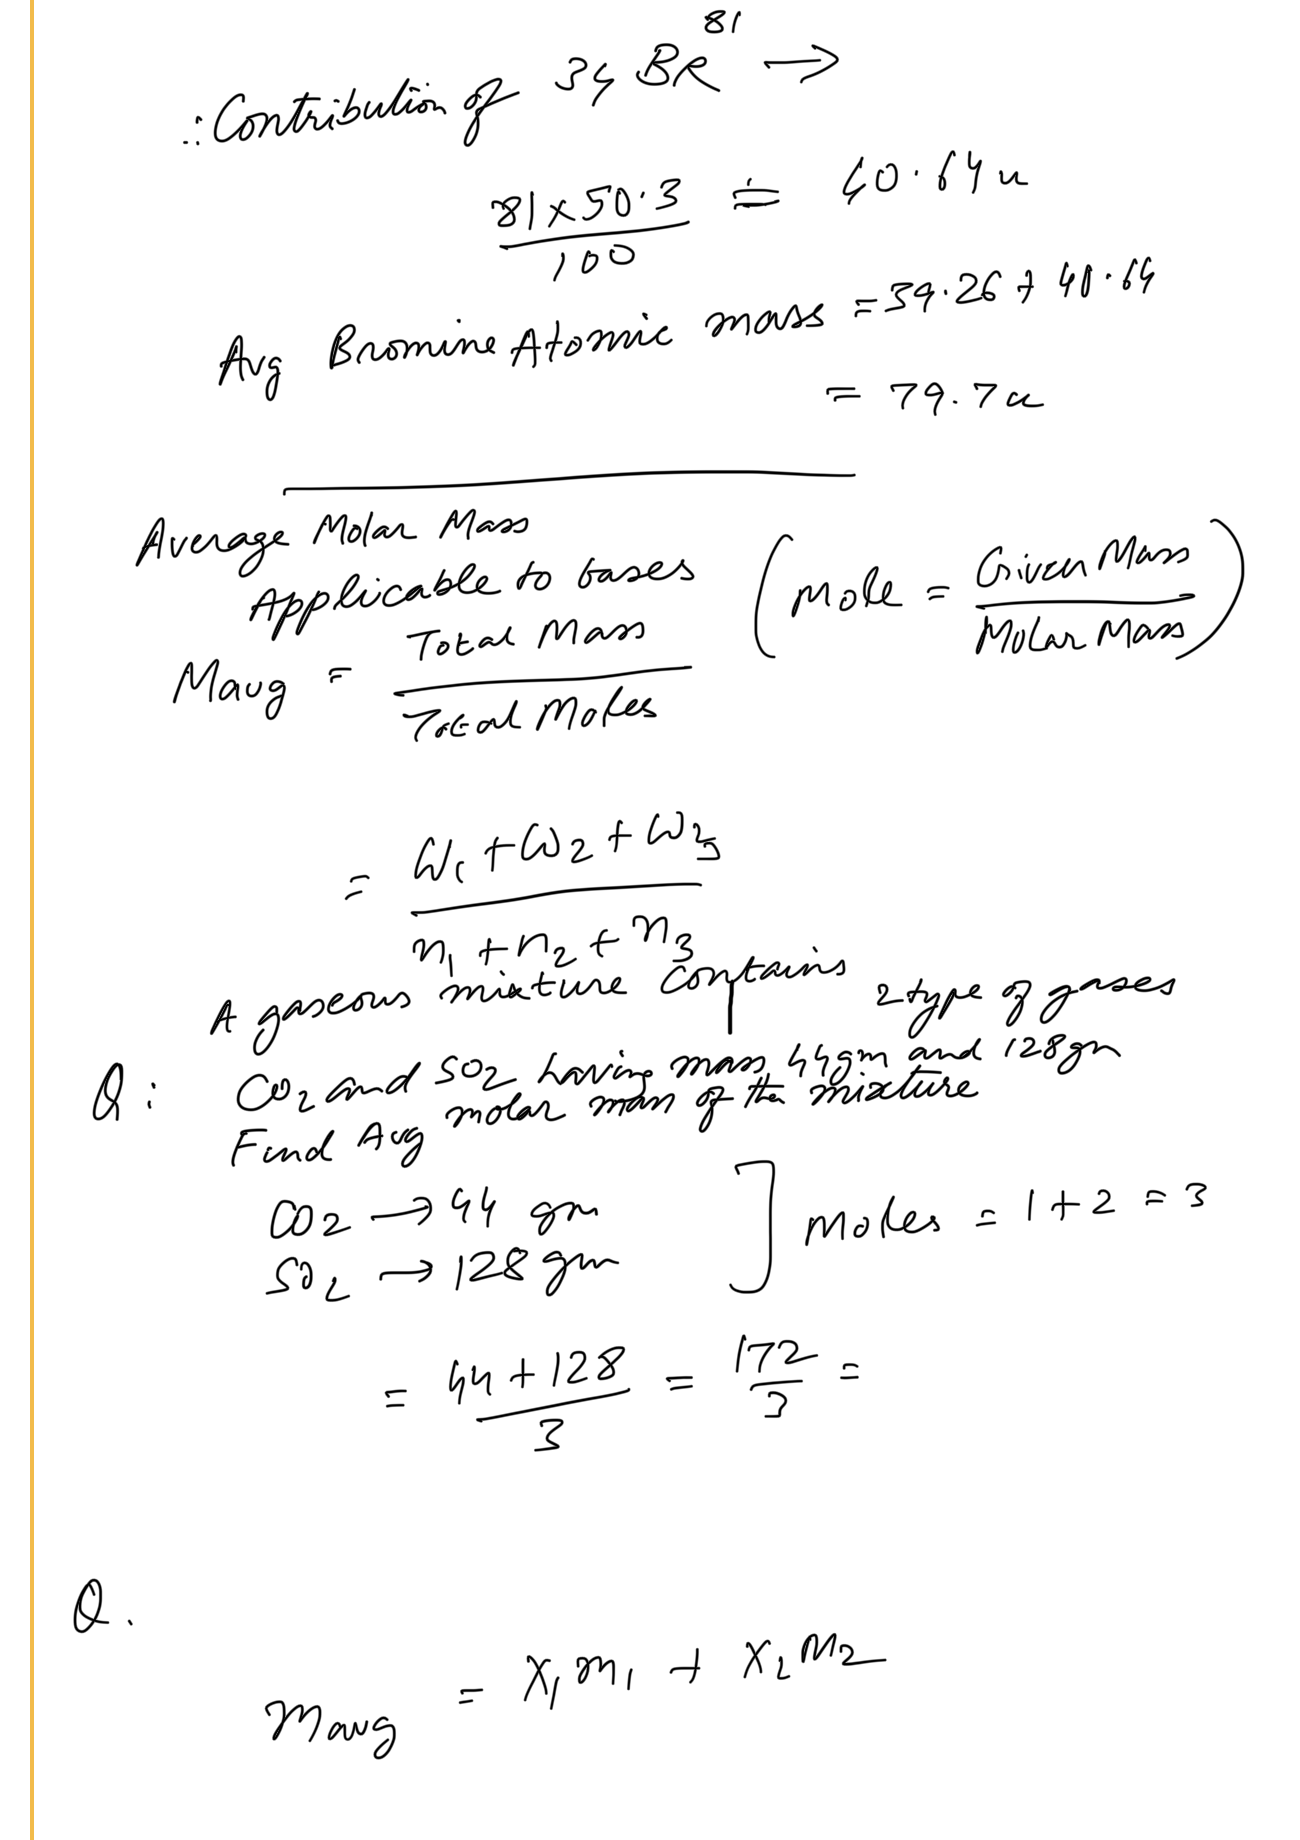 ∴ Contribution of 34 BR⁸¹ →
81×50.3 / 100 = 40.64 u
Avg Bromine Atomic mass = 39.26 + 40.64
= 79.7 u
Average Molar Mass
Applicable to Gases
(Mole = Given Mass / Molar Mass)
Mavg = Total Mass / Total Moles
= W₁ + W₂ + W₃ / n₁ + n₂ + n₃
A gaseous mixture contains 2 type of gases
Q: CO₂ and SO₂ having mass 44gm and 128gm
Find Avg molar mass of the mixture
CO₂ → 44 gm
SO₂ → 128 gm
] Moles = 1 + 2 = 3
= 44 + 128 / 3 = 172 / 3 =
Q.
Mavg = X₁ m₁ + X₂ M₂